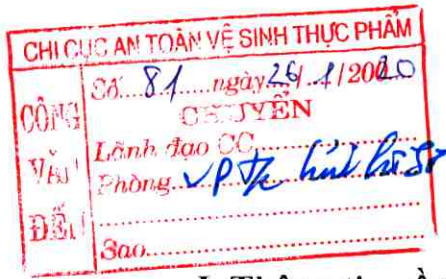 CHI CỤC AN TOÀN VỆ SINH THỰC PHẨM
CÔNG
VĂN
ĐẾN
Số....81......ngày.26/.1/2020
CHUYỂN
Lãnh đạo CC
Phòng VP
Sao
I. Thông tin